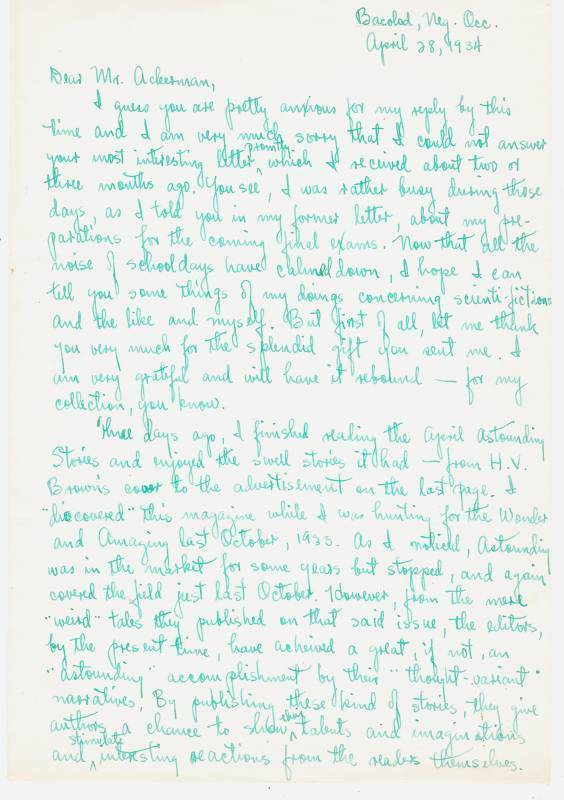 Bacolod, Neg. Occ.
April 28, 1934
Dear Mr. Ackerman,
I guess you are pretty anxious for my reply by this
time and I am very much sorry that I could not answer
your most interesting letter promptly which I received about two or
three months ago. You see, I was rather busy during those
days, as I told you in my former letter, about my pre-
parations for the coming final exams. Now that all the
noise of schooldays have calmed down, I hope I can
tell you some things of my doings concerning scienti-fictions
and the like and myself. But first of all, let me thank
you very much for the splendid gift you sent me. I
am very grateful and will have it rebound — for my
collection, you know.
Three days ago, I finished reading the April Astounding
Stories and enjoyed the swell stories it had — from H.V.
Brown's cover to the advertisement on the last page. I
"discovered" this magazine while I was hunting for the Wonder
and Amazing last October, 1933. As I noticed, Astounding
was in the market for some years but stopped, and again
covered the field just last October. However, from the mere
"weird" tales they published on that said issue, the editors,
by the present time, have acheived a great, if not, an
"astounding" accomplishment by their "thought-variant"
narratives. By publishing these kind of stories, they give
authors a chance to show their talents and imaginations
and stimulate interesting reactions from the readers themselves.